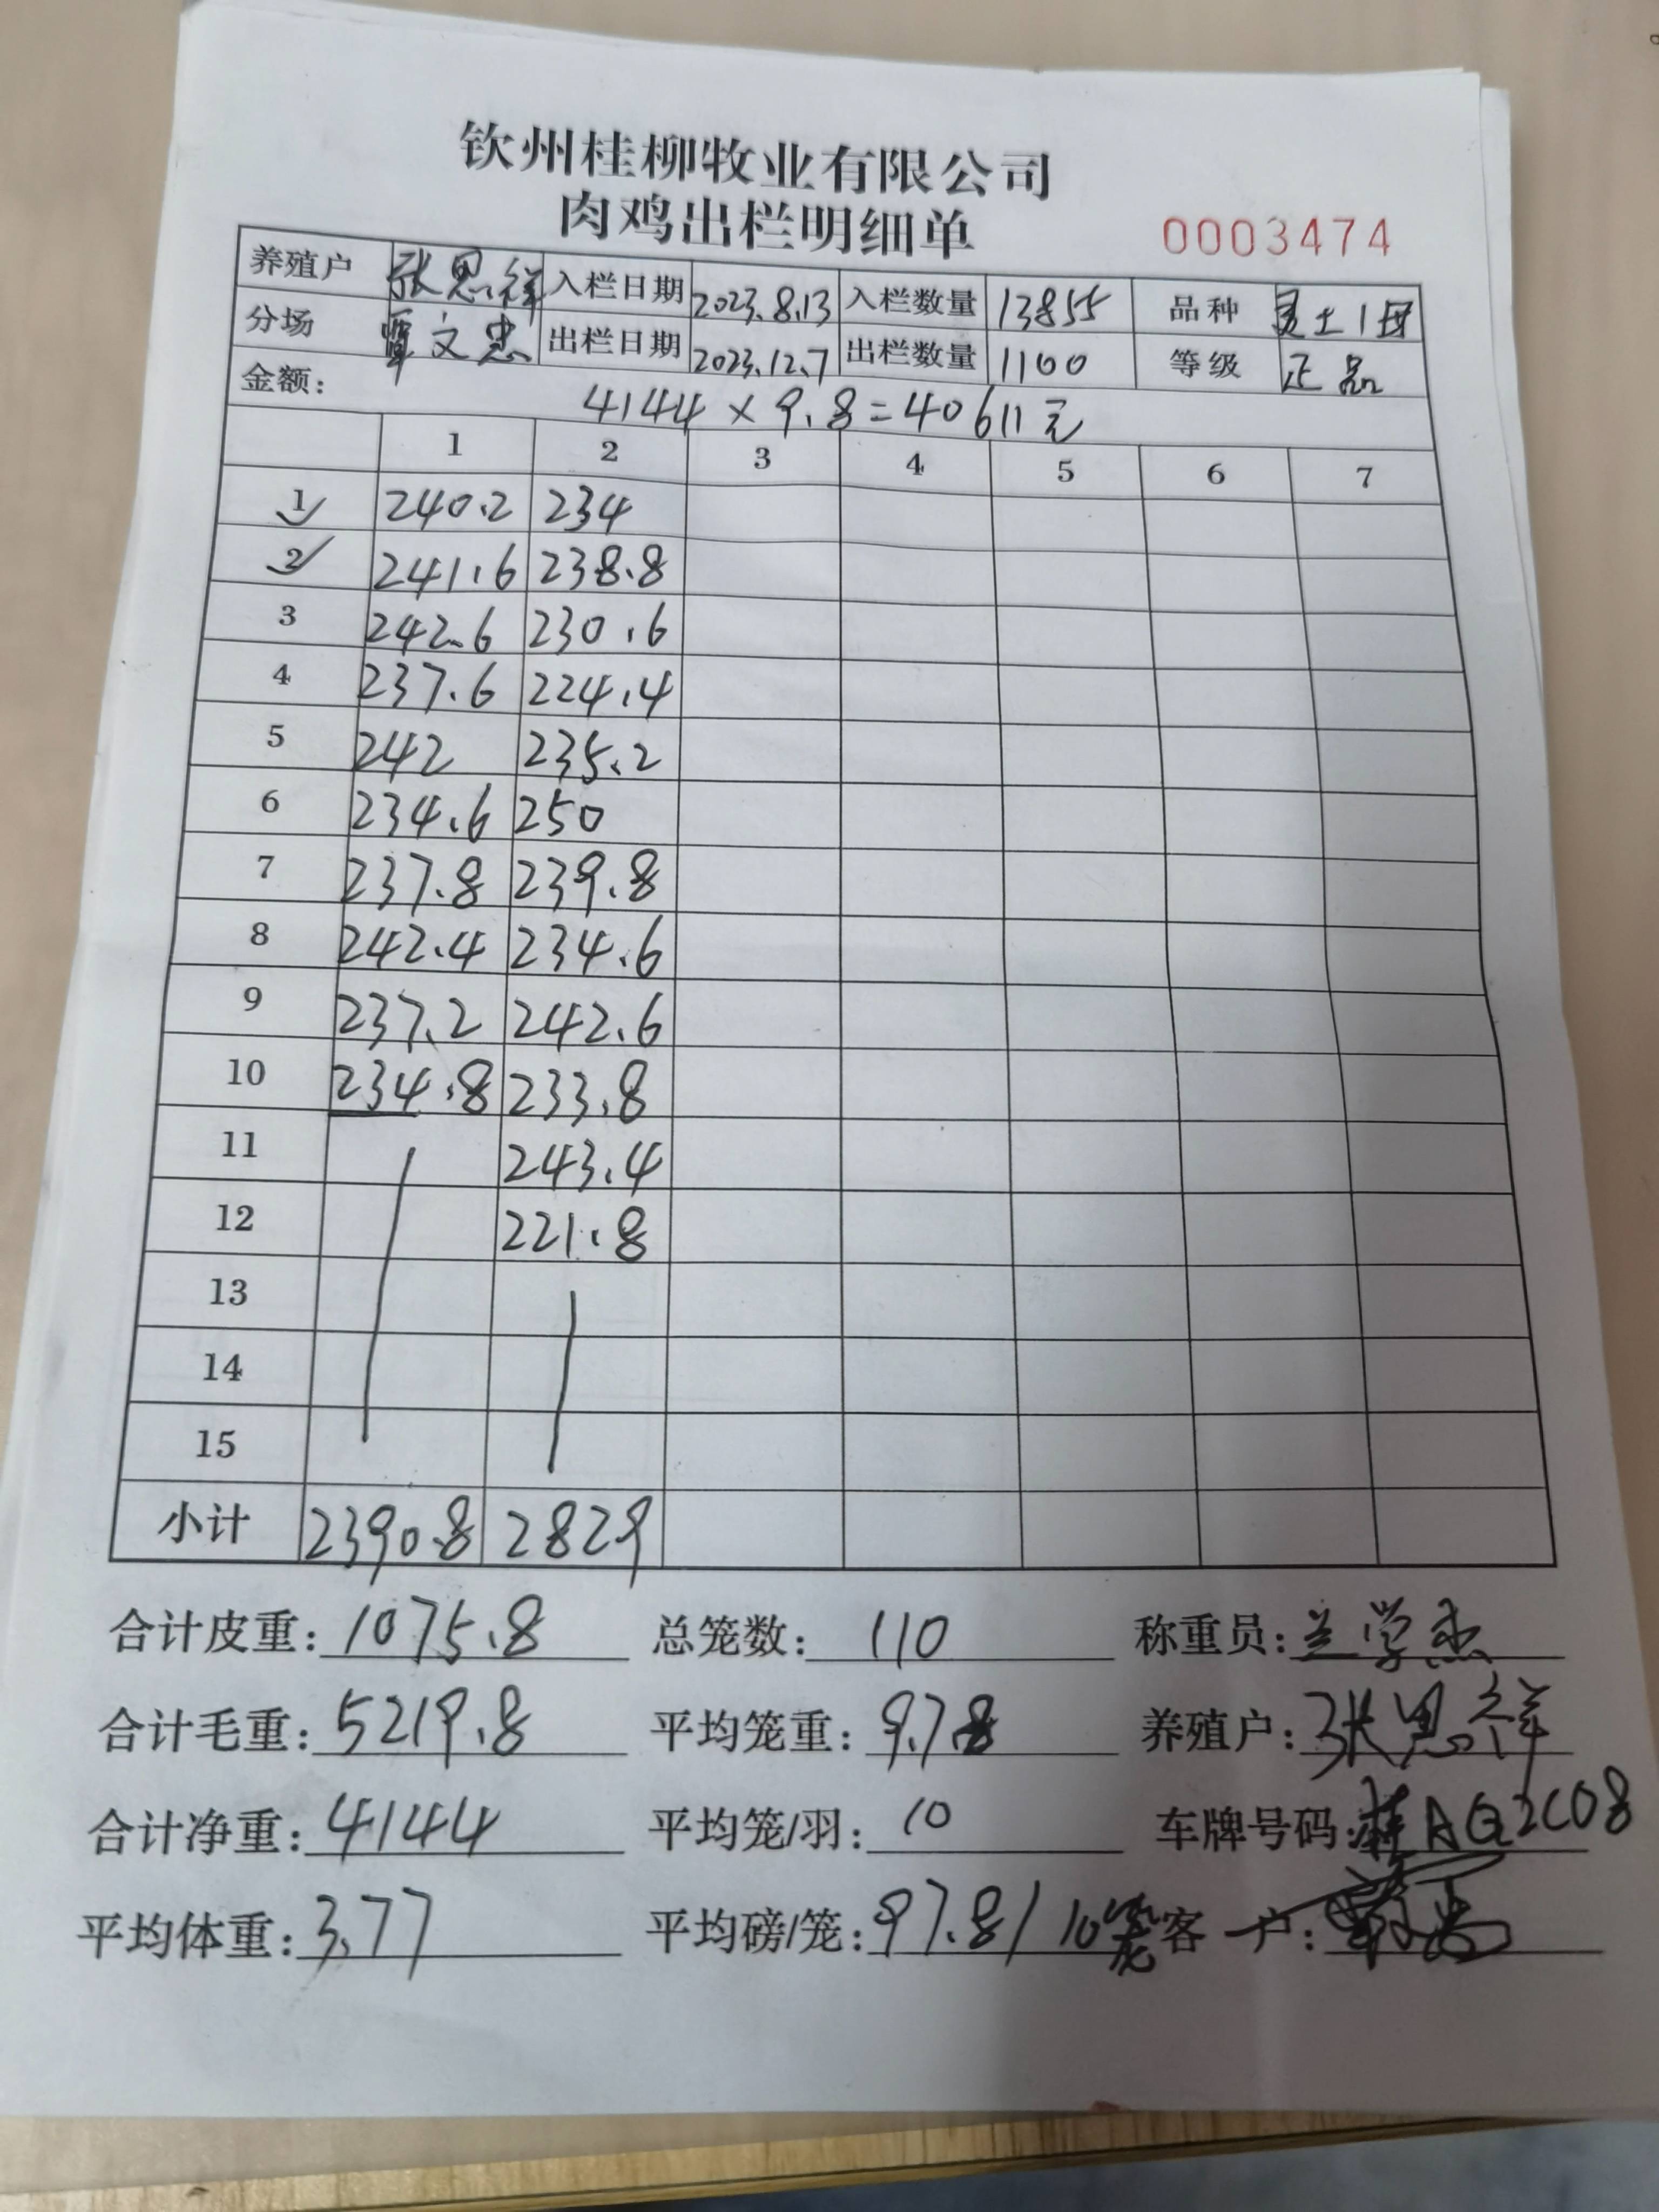 钦州桂柳牧业有限公司
肉鸡出栏明细单 0003474
养殖户 张思祥 入栏日期 2023.8.13 入栏数量 13855 品种 土1母
分场 覃文忠 出栏日期 2023.12.7 出栏数量 1100 等级 正品
金额: 4144 × 9.8=40611元
1 2 3 4 5 6 7
1 240.2 234
2 241.6 238.8
3 242.6 230.6
4 237.6 224.4
5 242 235.2
6 234.6 250
7 237.8 239.8
8 242.4 234.6
9 237.2 242.6
10 234.8 233.8
11 243.4
12 221.8
13
14
15
小计 2390.8 2829
合计皮重: 1075.8 总笼数: 110 称重员: 兰学杰
合计毛重: 5219.8 平均笼重: 9.78 养殖户: 张思祥
合计净重: 4144 平均笼/羽: 10 车牌号码: 桂AG2C08
平均体重: 3.77 平均磅/笼: 97.8/10笼 客户: